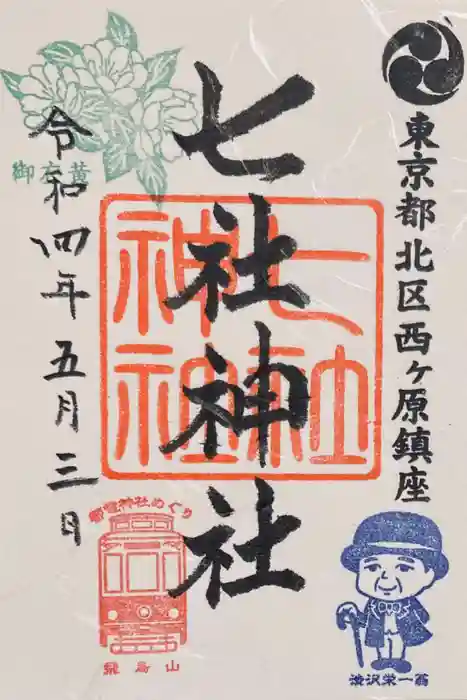 東京都北区西ヶ原鎮座
七社神社
七社神社
令和四年五月三日
御衣黄
都電神社めぐり
飛鳥山
渋沢栄一翁